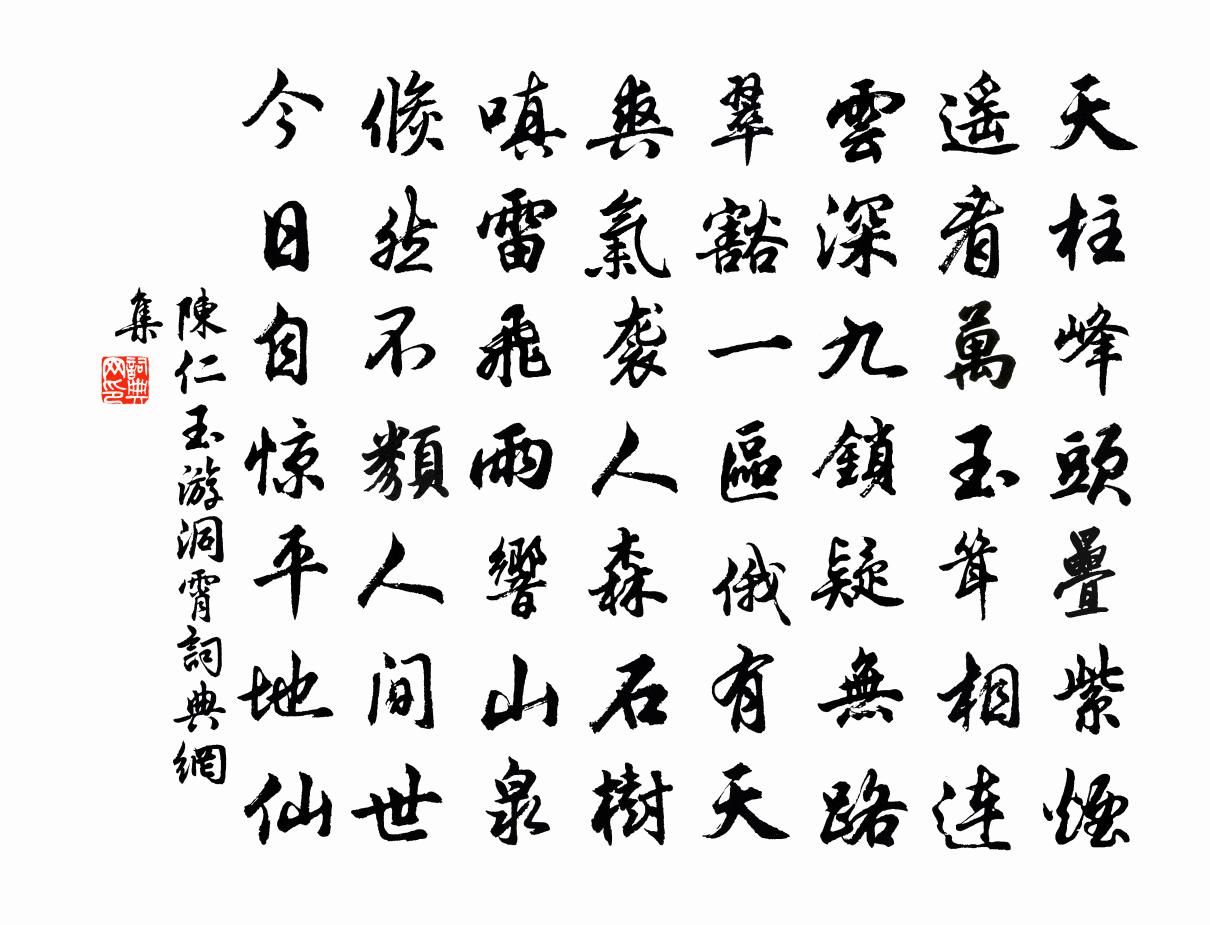 天柱峰頭疊紫煙
遥看萬玉聳相連
雲深九鎖疑無路
翠豁一區俄有天
爽氣袭人森石樹
嗔雷飛雨響山泉
倏然不類人间世
今日自惊平地仙
陳仁玉游洞霄詞典網
集
詞典
网印